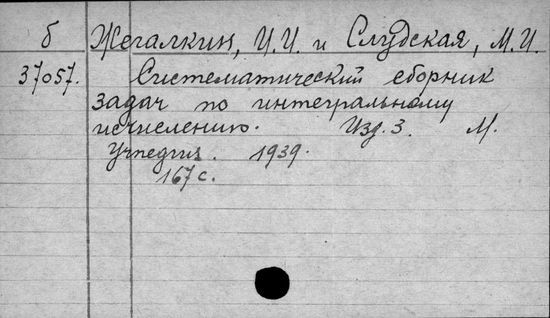 б Жегалкин, И.И. и Слудская, М.И.
37057. Систематический сборник
задач по интегральному
исчислению. Изд. 3. М.
Учпедгиз. 1939.
167 с.